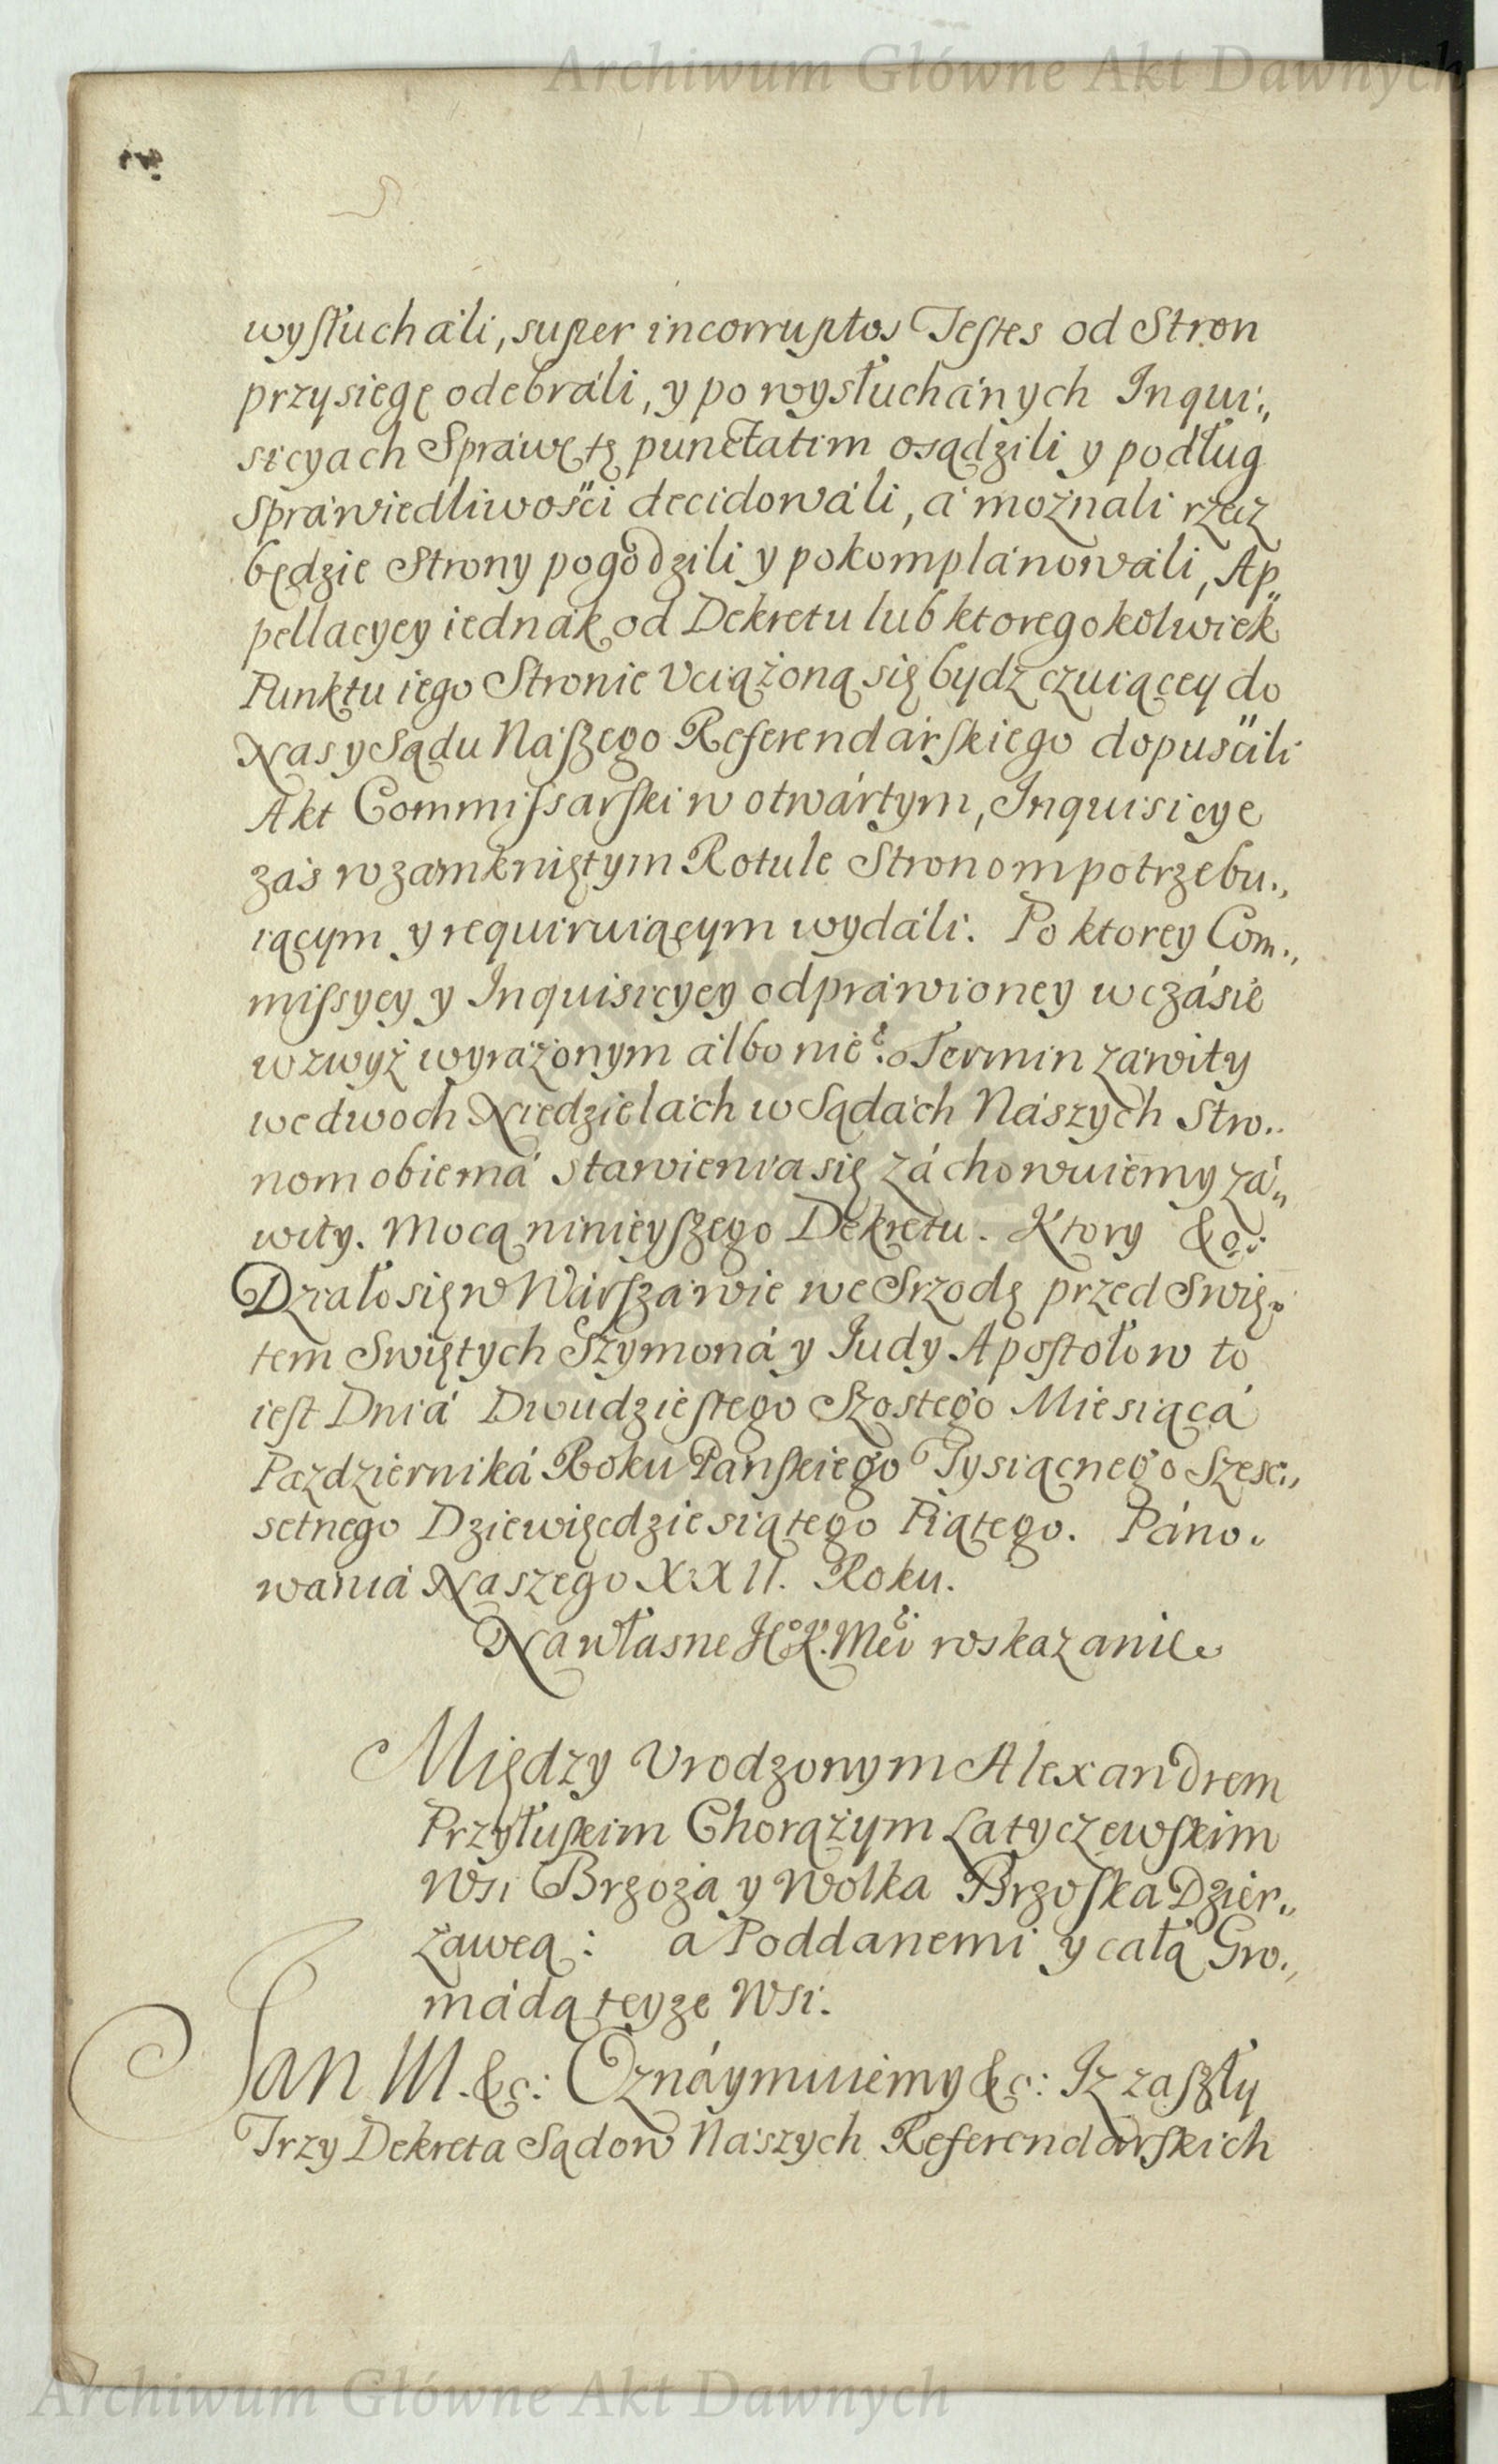 Archiwum Główne Akt Dawnych
wysłucháli, super incorruptos Testes od Stron
przysięgę odebráli, y po wysłuchánych Inqui„
sicyach Spráwę tę punctatim osądzili y podług
spráwiedliwości decidowáli, á możnali rzecz
będzie Strony pogodzili y pokomplánowáli, Ap„
pellacyey iednák od Dekretu lub ktoregokolwiek
Punktu iego Stronie Vciążoną się bydź czuiącey do
Nas y Sądu Nászego Referendárskiego dopuścili
Akt Commissarski w otwártym, Inquisicye
záś w zamkniętym Rotule Stronom potrzebu„
iącym y requiruiącym wydáli. Po ktorey Com„
missyey y Inquisicyey odpráwioney w czásie
wzwyż wyráżonym álbo nie. Termin záwity
we dwoch Niedzielách w Sądách Nászych Stro„
nom obiemá stawienia się záchowuiemy zá„
wity. Mocą ninieyszego Dekretu. Ktory &c:
Działo się w Wárszáwie we Srzodę przed Swię„
tem Swiętych Szymoná y Judy Apostołow to
iest Dniá Dwudziestego Szostego Miesiącá
Pazdzierniká Roku Panskiego Tysiącnego Szesc„
setnego Dziewięcdziesiątego Piątego. Páno„
wania Naszego XXII. Roku.
Na własne J K. Mci roskazanie
Między Vrodzonym Alexandrem
Przyłuskim Chorążym Latyczewskim
Wsi Brzoza y Wolka Brzoska Dzier„
zawcą: a Poddanemi y całą Gro„
mádą teyze Wsi.
Jan III. &c: Oznáymuiemy &c: Iz zaszły
Trzy Dekreta Sądow Nászych Referendárskich
Archiwum Główne Akt Dawnych